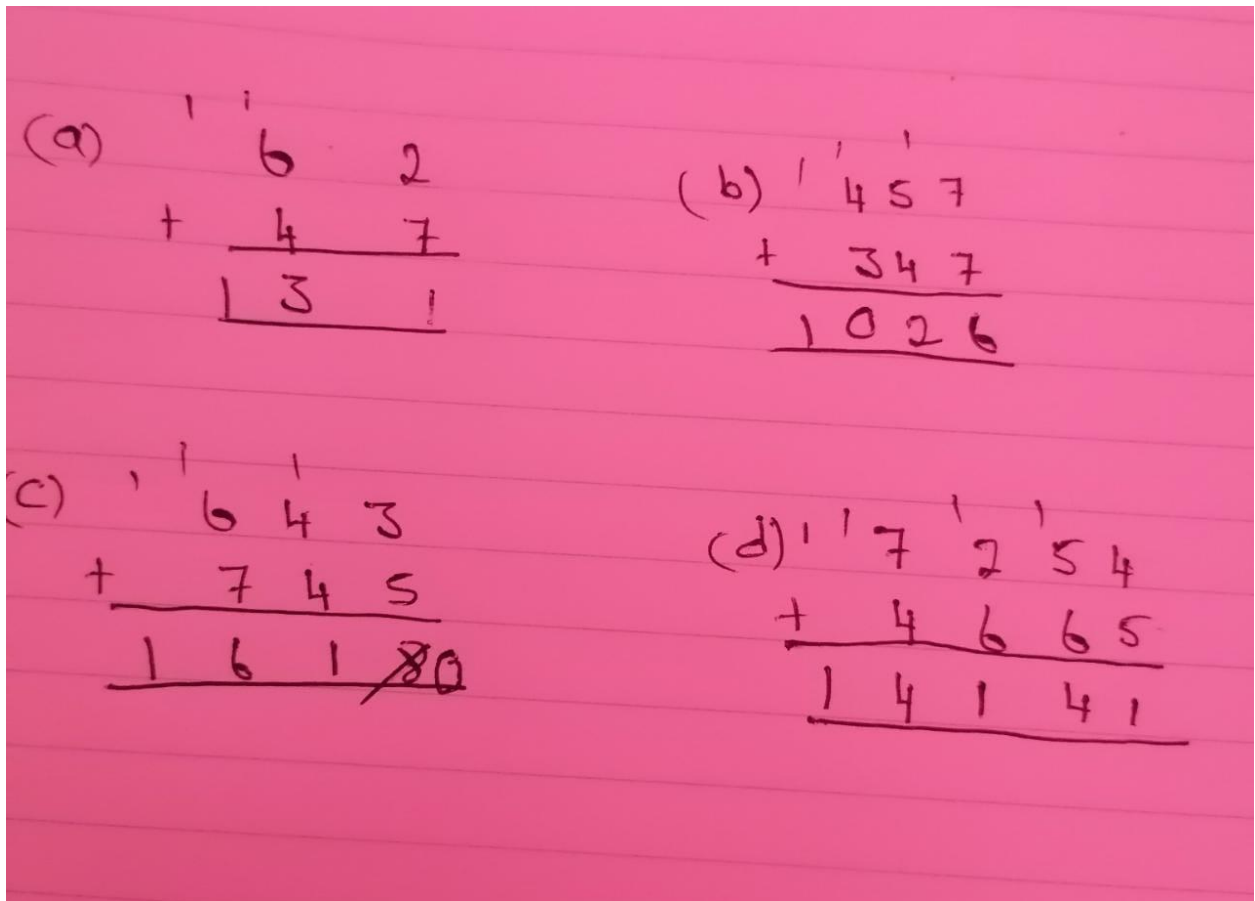 (a) 1 1
6 2
+ 4 7
1 3 1
(b) 1 1 1
4 5 7
+ 3 4 7
1 0 2 6
(c) 1 1 1
6 4 3
+ 7 4 5
1 6 1 0
(d) 1 1 1 1
7 2 5 4
+ 4 6 6 5
1 4 1 4 1